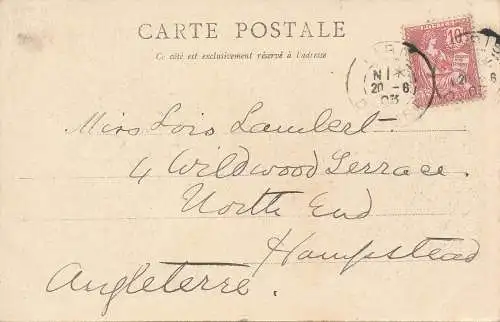 CARTE POSTALE
Ce côté est exclusivement réservé à l'adresse
10
N1*
20 - 6
03
20 6
Miss Lois Lambert.
4 Wildwood Terrace.
North End
Hampstead
Angleterre.